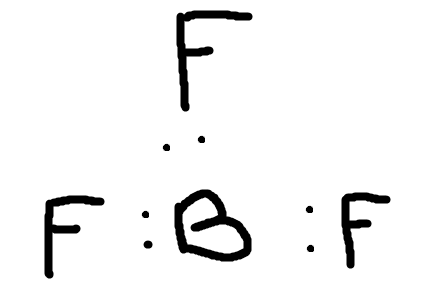 F
..
F : B : F